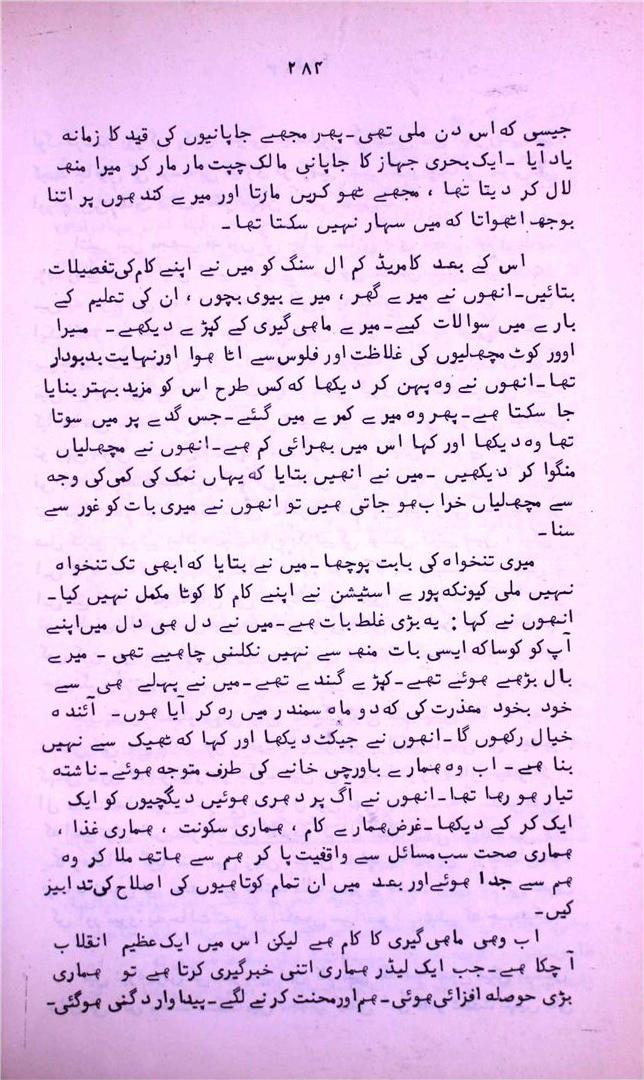 ۲۸۴
جیسی که اس دن ملی تھی۔ پھر مجھے جاپانیوں کی قید کا زمانه
یاد آیا ۔ ایک بحری جہاز کا جاپانی مالک چپت مار مار کر میرا منھ
لال کر دیتا تھا ، مجھے ٹھوکریں مارتا اور میرے کندھوں پر اتنا
بوجھ اٹھواتا که میں سہار نہیں سکتا تھا ۔
اس کے بعد کامریڈ کم ال سنگ کو میں نے اپنے کام کی تفصیلات
بتائیں۔ انھوں نے میرے گھر ، میرے بیوی بچوں ، ان کی تعلیم کے
بارے میں سوالات کیے۔ میرے ماھی گیری کے کپڑے دیکھے ۔ میرا
اوور کوٹ مچھلیوں کی غلاظت اور فلوس سے اٹا ھوا اور نہایت بدبودار
تھا ۔ انھوں نے وہ پہن کر دیکھا که کس طرح اس کو مزید بہتر بنایا
جا سکتا ھے۔ پھر وہ میرے کمرے میں گئے۔ جس گدے پر میں سوتا
تھا وہ دیکھا اور کہا اس میں بھرائی کم ھے۔ انھوں نے مچھلیاں
منگوا کر دیکھیں ۔ میں نے انھیں بتایا که یہاں نمک کی کمی کی وجه
سے مچھلیاں خراب ھو جاتی ھیں تو انھوں نے میری بات کو غور سے
سنا ۔
میری تنخواہ کی بابت پوچھا ۔ میں نے بتایا که ابھی تک تنخواہ
نہیں ملی کیونکه پورے اسٹیشن نے اپنے کام کا کوٹا مکمل نہیں کیا ۔
انھوں نے کہا : یه بڑی غلط بات ھے۔ میں نے دل ھی دل میں اپنے
آپ کو کوسا که ایسی بات منھ سے نہیں نکلنی چاھیے تھی ۔ میرے
بال بڑھے ھوئے تھے۔ کپڑے گندے تھے۔ میں نے پہلے ھی سے
خود بخود معذرت کی که دو ماہ سمندر میں رہ کر آیا ھوں۔ آئندہ
خیال رکھوں گا ۔ انھوں نے جیکٹ دیکھا اور کہا که ٹھیک سے نہیں
بنا ھے۔ اب وہ ھمارے باورچی خانے کی طرف متوجه ھوئے۔ ناشته
تیار ھو رھا تھا ۔ انھوں نے آگ پر دھری ھوئیں دیگچیوں کو ایک
ایک کر کے دیکھا ۔ غرض ھمارے کام ، ھماری سکونت ، ھماری غذا ،
ھماری صحت سب مسائل سے واقفیت پا کر ھم سے ھاتھ ملا کر وہ
ھم سے جدا ھوئے اور بعد میں ان تمام کوتاھیوں کی اصلاح کی تدابیر
کیں ۔
اب وھی ماھی گیری کا کام ھے لیکن اس میں ایک عظیم انقلاب
آ چکا ھے۔ جب ایک لیڈر ھماری اتنی خبرگیری کرتا ھے تو ھماری
بڑی حوصله افزائی ھوئی ۔ ھم اور محنت کرنے لگے۔ پیداوار دگنی ھوگئی۔